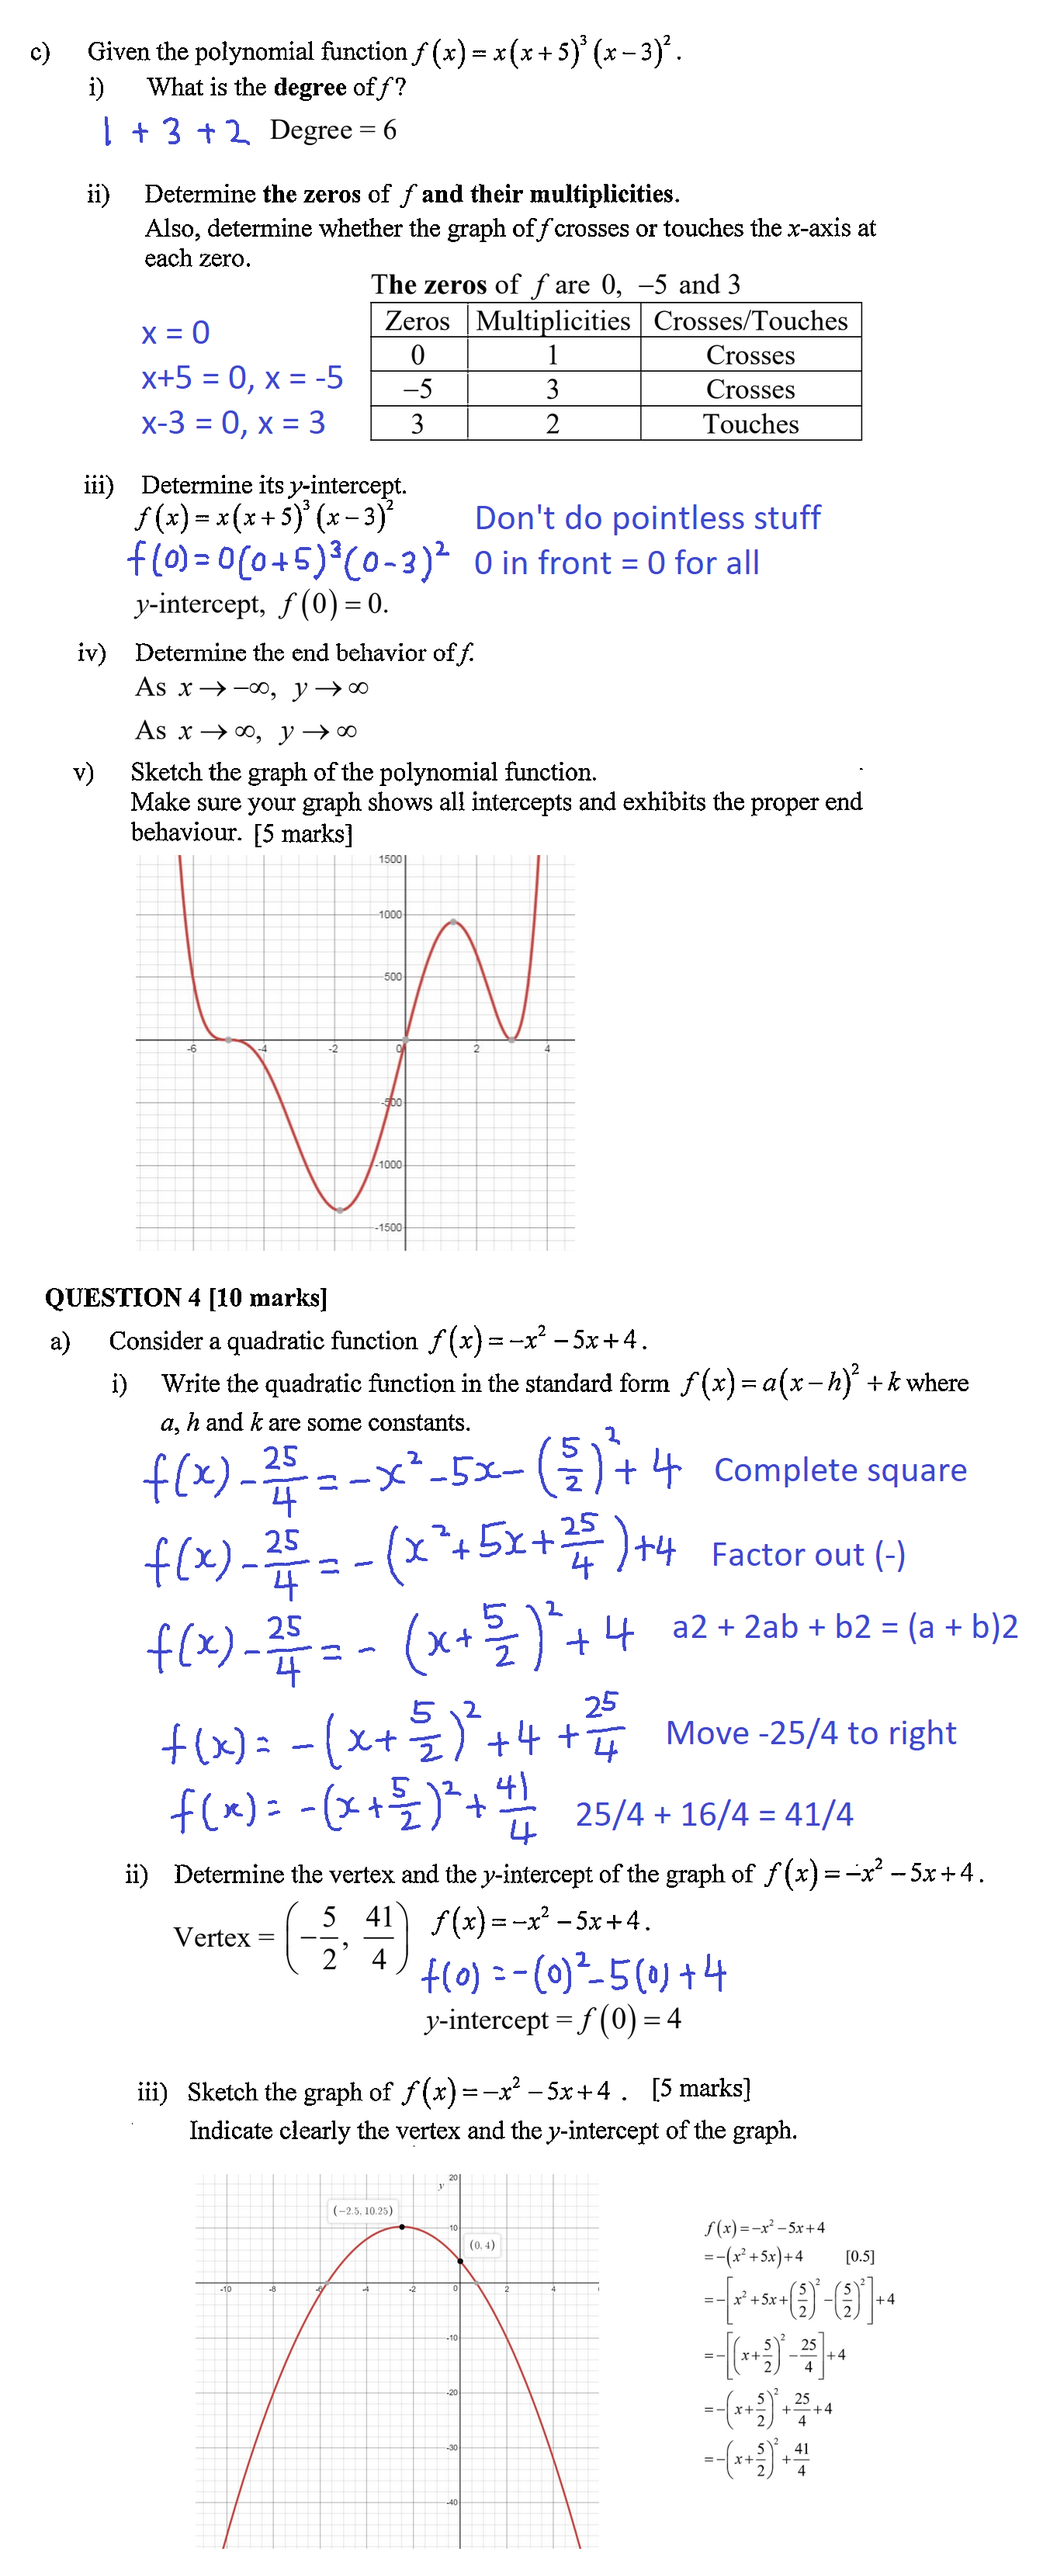 c) Given the polynomial function f(x) = x(x+5)³(x−3)².
i) What is the degree of f?
1 + 3 + 2 Degree = 6
ii) Determine the zeros of f and their multiplicities.
Also, determine whether the graph of f crosses or touches the x-axis at
each zero.
The zeros of f are 0, −5 and 3
Zeros Multiplicities Crosses/Touches
0 1 Crosses
−5 3 Crosses
3 2 Touches
x = 0
x+5 = 0, x = -5
x-3 = 0, x = 3
iii) Determine its y-intercept.
f(x) = x(x+5)³(x−3)² Don't do pointless stuff
f(0) = 0(0+5)³(0-3)² 0 in front = 0 for all
y-intercept, f(0) = 0.
iv) Determine the end behavior of f.
As x → −∞, y → ∞
As x → ∞, y → ∞
v) Sketch the graph of the polynomial function.
Make sure your graph shows all intercepts and exhibits the proper end
behaviour. [5 marks]
1500
1000
500
-6 -4 -2 0 2 4
-500
-1000
-1500
QUESTION 4 [10 marks]
a) Consider a quadratic function f(x) = −x² − 5x + 4.
i) Write the quadratic function in the standard form f(x) = a(x−h)² + k where
a, h and k are some constants.
f(x) - 25/4 = -x² - 5x - (5/2)² + 4 Complete square
f(x) - 25/4 = -(x² + 5x + 25/4) + 4 Factor out (-)
f(x) - 25/4 = -(x + 5/2)² + 4 a2 + 2ab + b2 = (a + b)2
f(x) = -(x + 5/2)² + 4 + 25/4 Move -25/4 to right
f(x) = -(x + 5/2)² + 41/4 25/4 + 16/4 = 41/4
ii) Determine the vertex and the y-intercept of the graph of f(x) = −x² − 5x + 4.
Vertex = (−5/2, 41/4) f(x) = −x² − 5x + 4.
f(0) = -(0)² - 5(0) + 4
y-intercept = f(0) = 4
iii) Sketch the graph of f(x) = −x² − 5x + 4 . [5 marks]
Indicate clearly the vertex and the y-intercept of the graph.
20
y
(−2.5, 10.25)
10
(0, 4)
-10 -8 -6 -4 -2 0 2 4
-10
-20
-30
-40
f(x) = −x² − 5x + 4
= −(x² + 5x) + 4 [0.5]
= −[x² + 5x + (5/2)² − (5/2)²] + 4
= −[(x + 5/2)² − 25/4] + 4
= −(x + 5/2)² + 25/4 + 4
= −(x + 5/2)² + 41/4